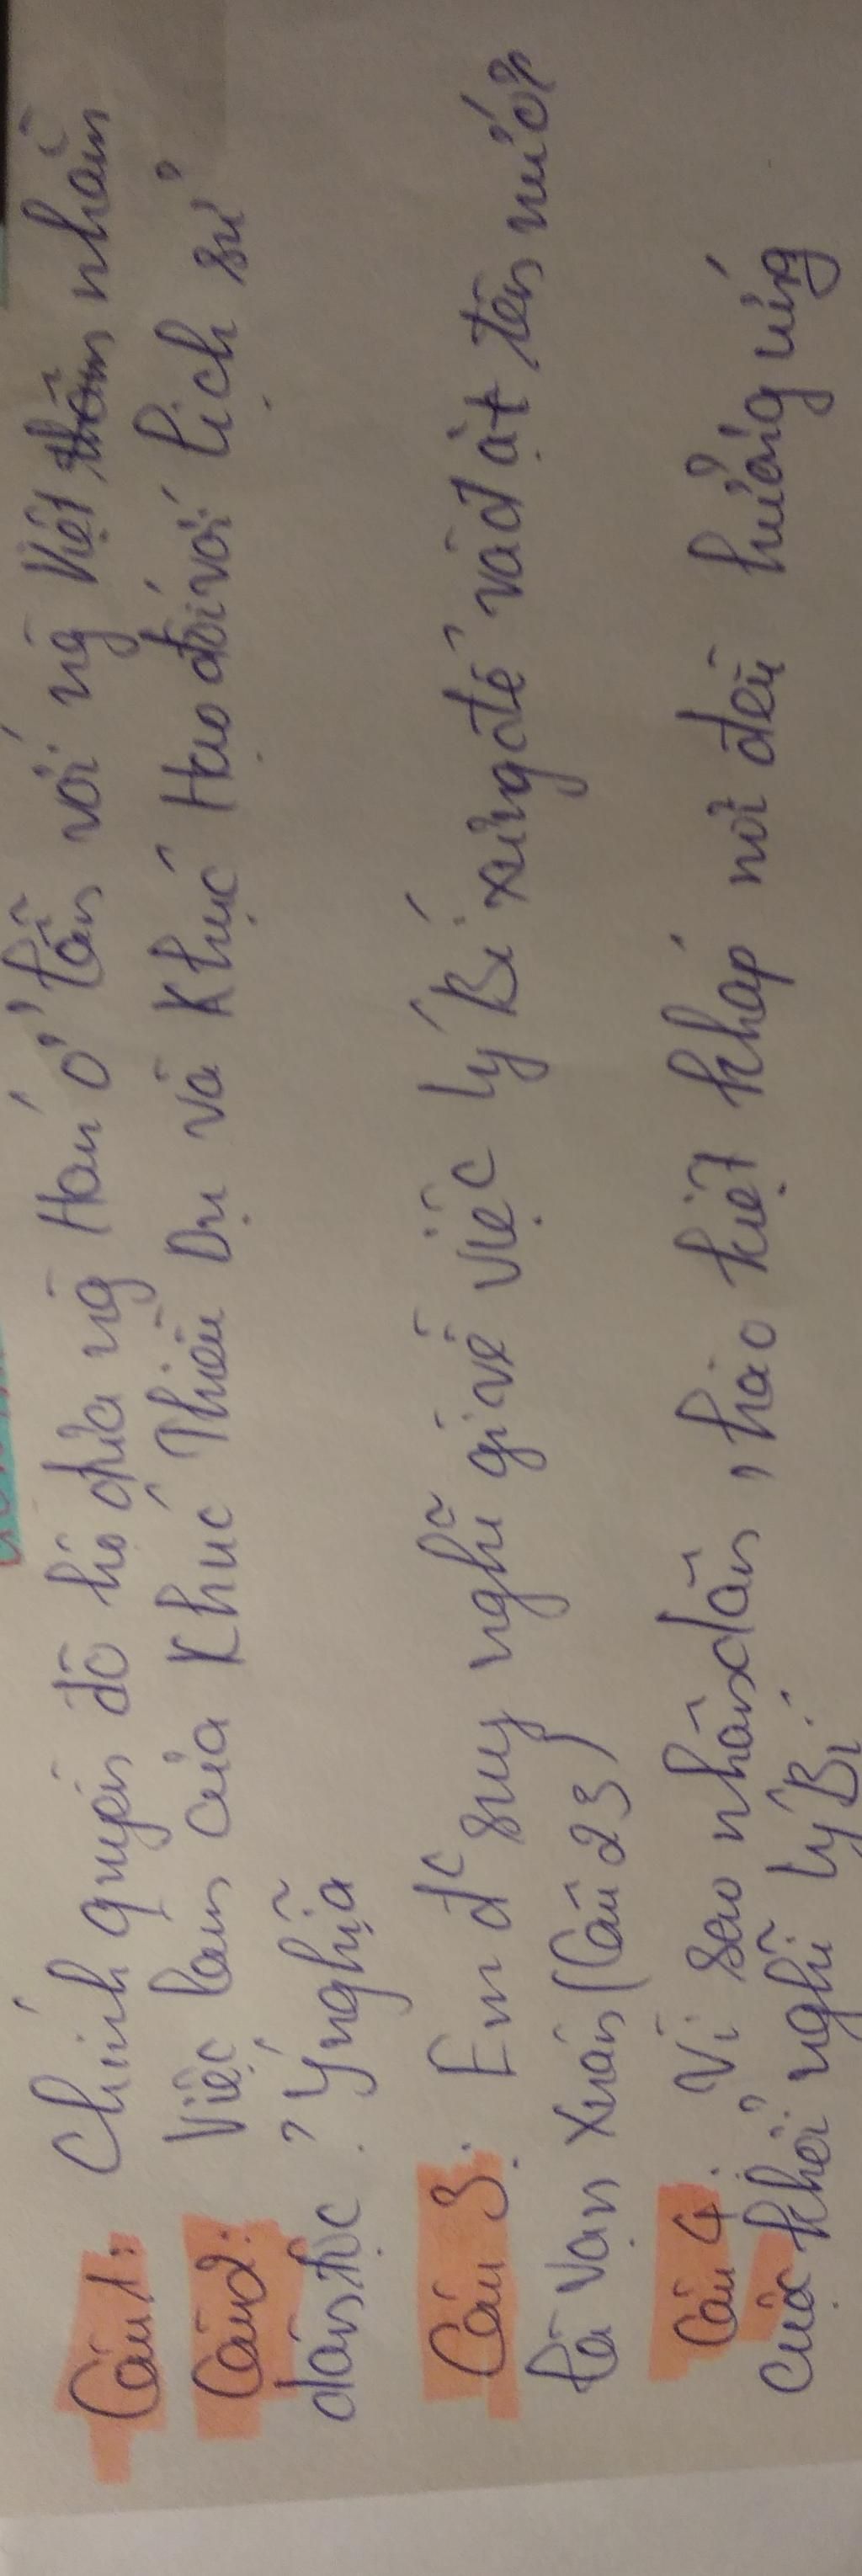 Câu 1: Chính quyền đô hộ đưa ng Hán ở lẫn với ng Việt nhằm
Câu 2: Việc làm của Khúc Thừa Dụ và Khúc Hạo đối với lịch sử
dân tộc ? Ý nghĩa
Câu 3. Em đc suy nghĩ gì về việc Lý Bí xưng đế và đặt tên nước
là Vạn Xuân (Câu 23)
Câu 4. Vì sao nhân dân, hào kiệt khắp nơi đều hưởng ứng
cuộc khởi nghĩ Lý Bí.